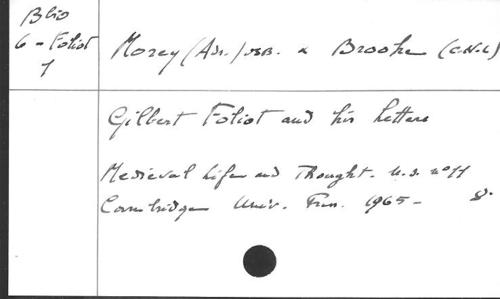 Blio
6 - Foliot
1
Morey (Adr.) OSB. & Brooke (C.N.L)
Gilbert Foliot and his letters
Medieval Life and Thought. N.S. no 11
Cambridge Univ. Press. 1965 -